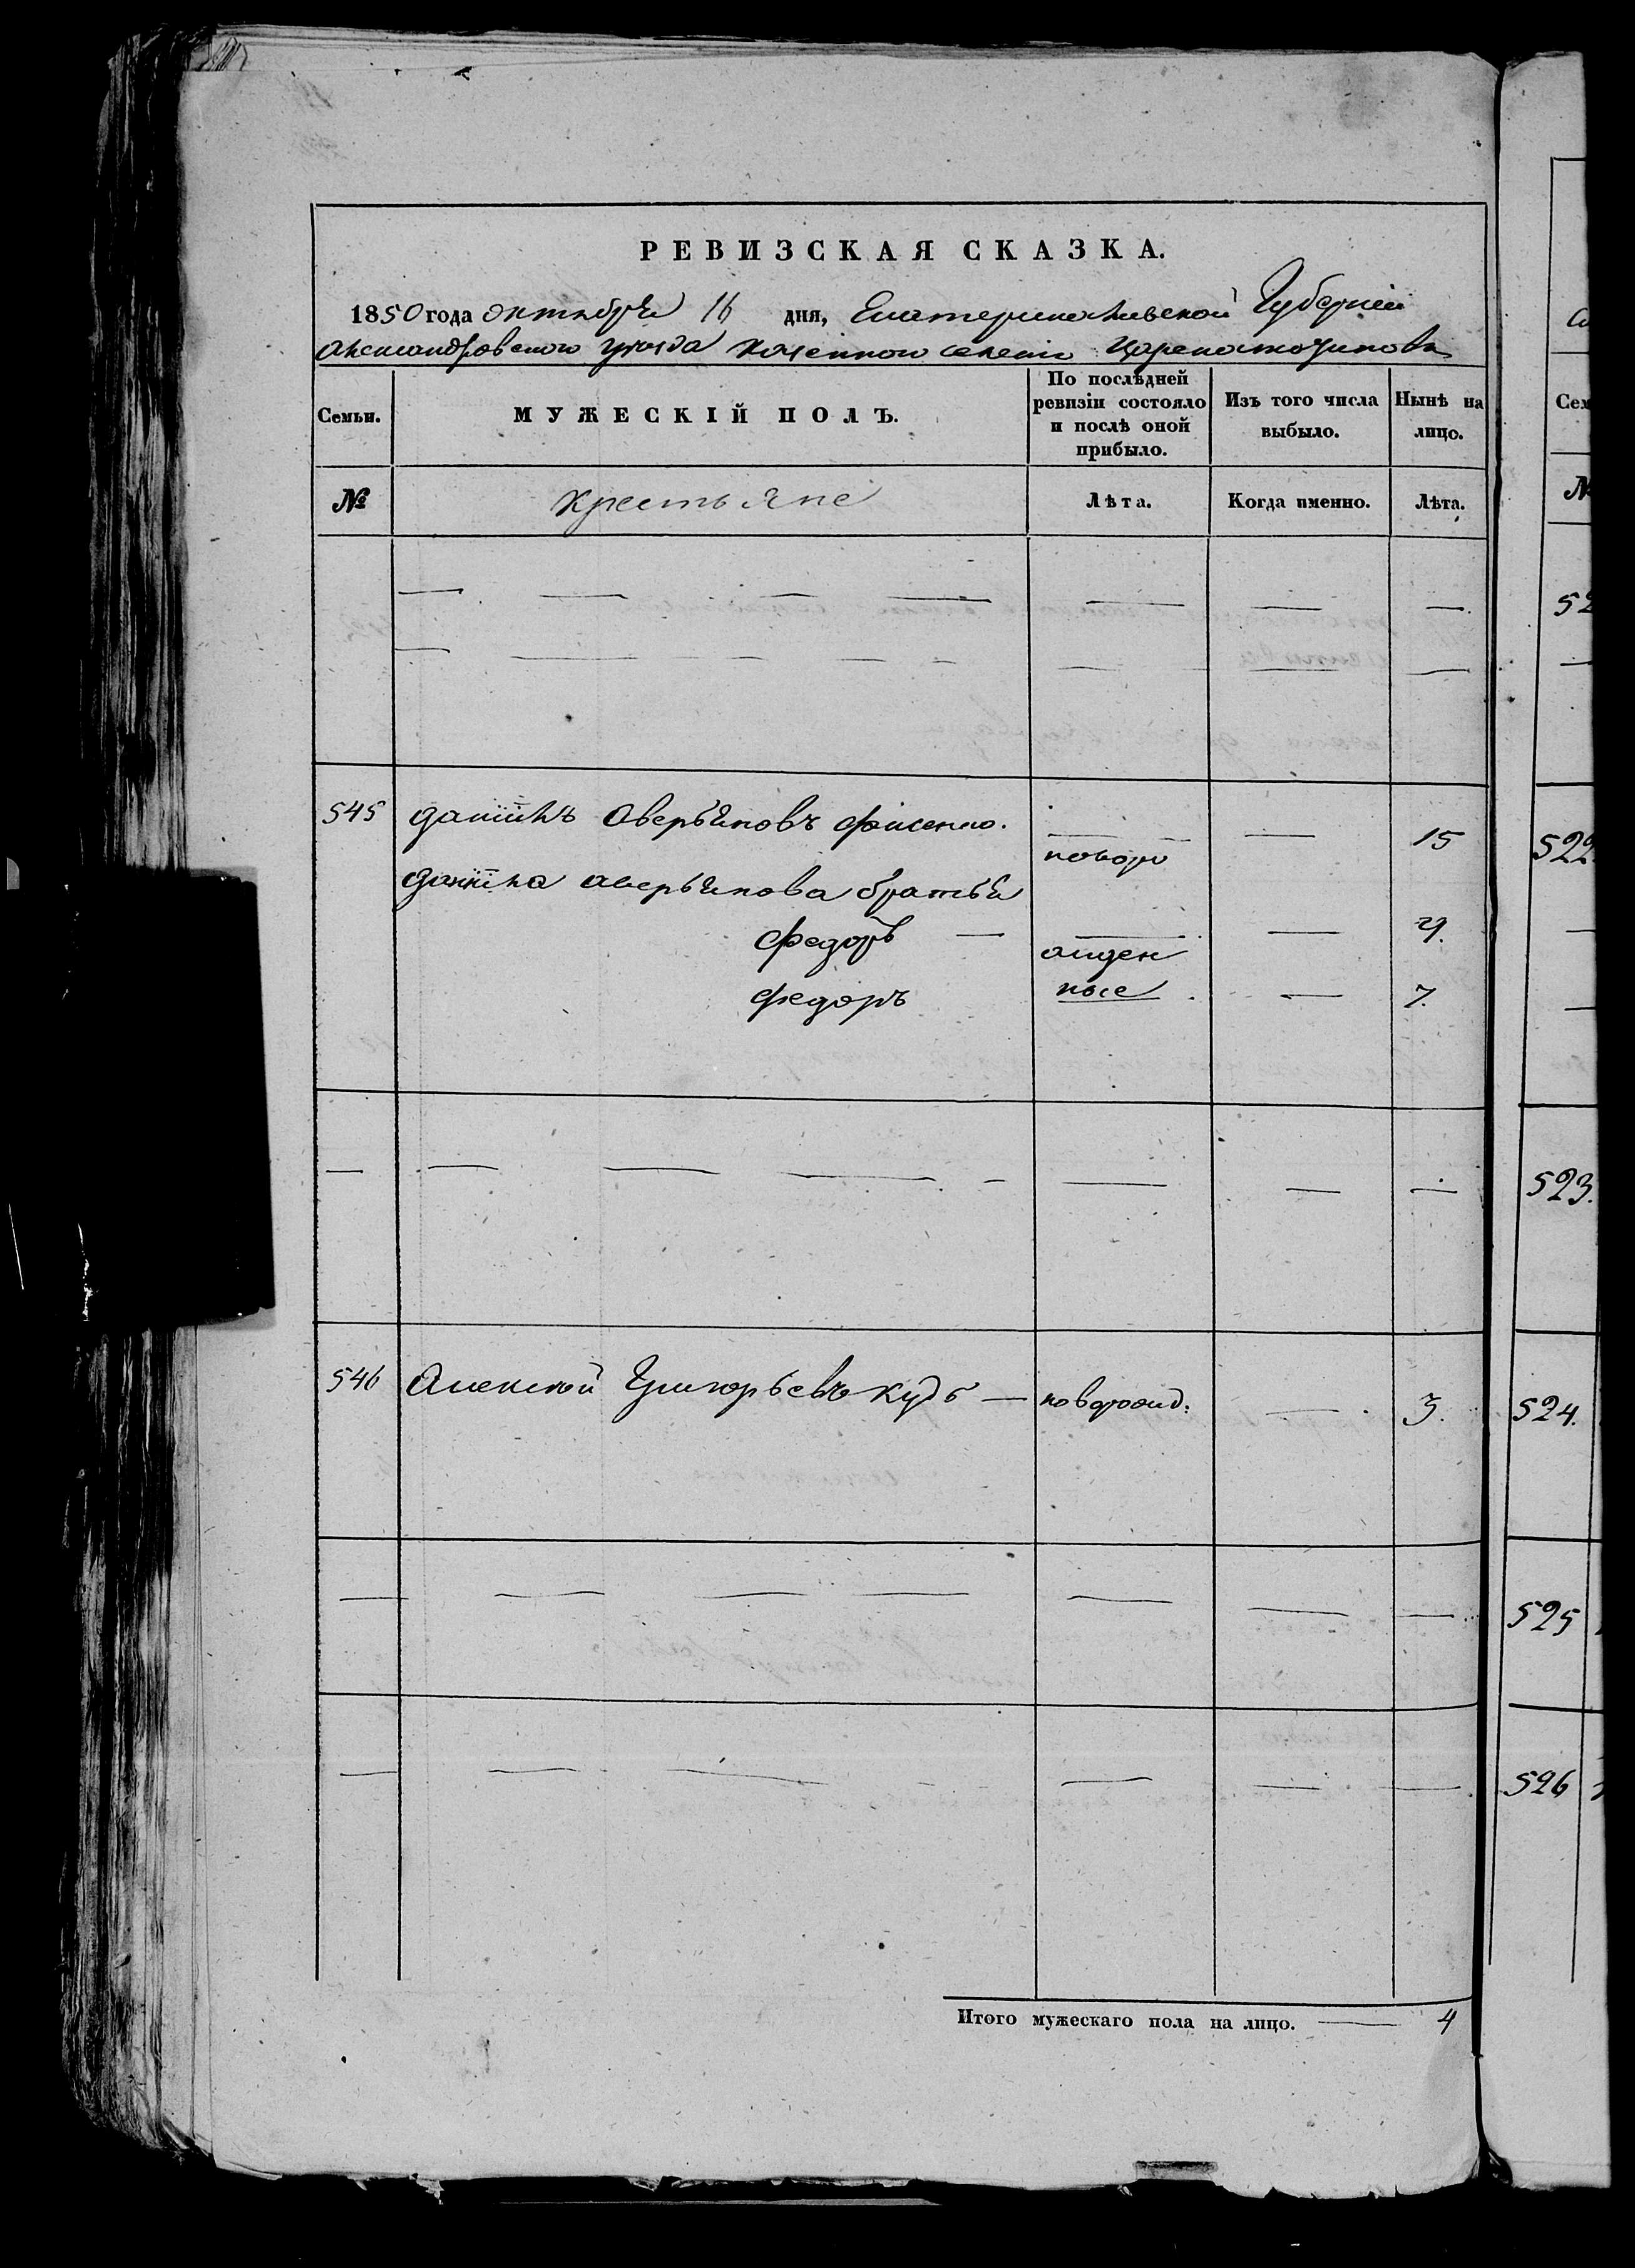 РЕВИЗСКАЯ СКАЗКА.
1850 года октября 16 дня, Екатеринославской Губернии
Александровского уезда казенного селения Царекостантиновки
Семьи.
МУЖЕСКІЙ ПОЛЪ.
По послѣдней
ревизіи состояло
и послѣ оной
прибыло.
Изъ того числа
выбыло.
Нынѣ на
лицо.
№
Крестьяне
Лѣта.
Когда именно.
Лѣта.
545 Данiилъ Аверьяновъ 15
новоро
Данiила Аверьянова братья
Федоръ — 9.
жден
Федоръ ные 7.
546 Алексѣй Григорьевъ Кудь — новорожд: 3.
Итого мужескаго пола на лицо. — 4
Сем
№
52
522
523.
524.
525
526